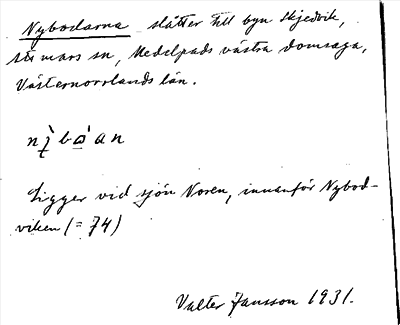 Nybodarna slåtter till byn Skjedvik,
Stu mars sn, Medelpads västra domsaga,
Västernorrlands län.
Ligger vid sjön Noren, innanför Nybod-
viken (= 74)
Valter Jansson 1931.